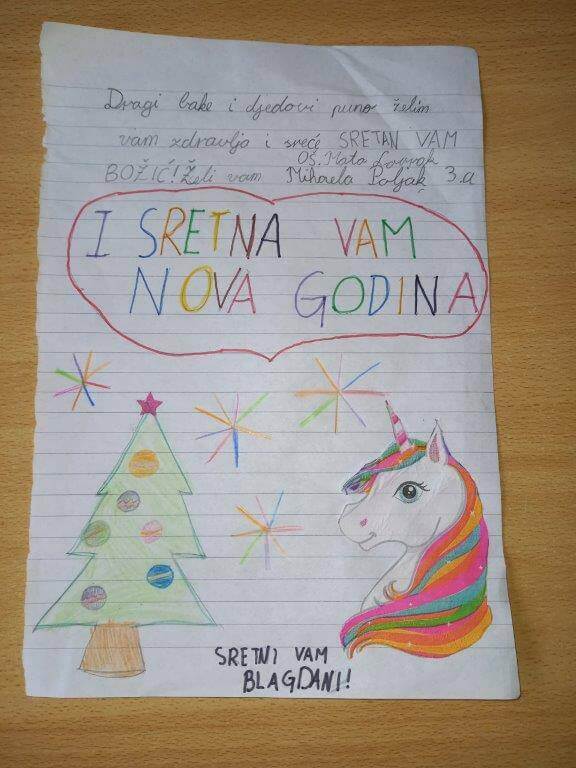 Dragi bake i djedovi puno želim
vam zdravlja i sreće SRETAN VAM
OŠ. Mato Lovrak
BOŽIĆ! Želi vam Mihaela Poljak 3.a
I SRETNA VAM
NOVA GODINA
SRETNI VAM
BLAGDANI!